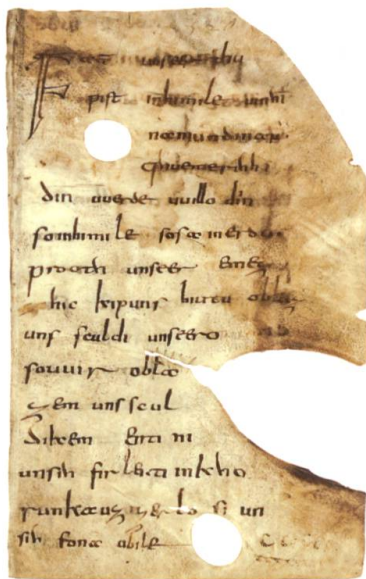 Fater unseer thu
pist inhimile uuihi
namun dinan
qhueme rihhi
din uuerde uuillo diin
so inhimile sosa in erdu
prooth unseer emez
hic kip uns hiutu oblaz
uns sculdi unseero
so uuir obla
zem uns scul
dikem enti ni
unsih firleiti in kho
runka uzzer losi un
sih fona ubile